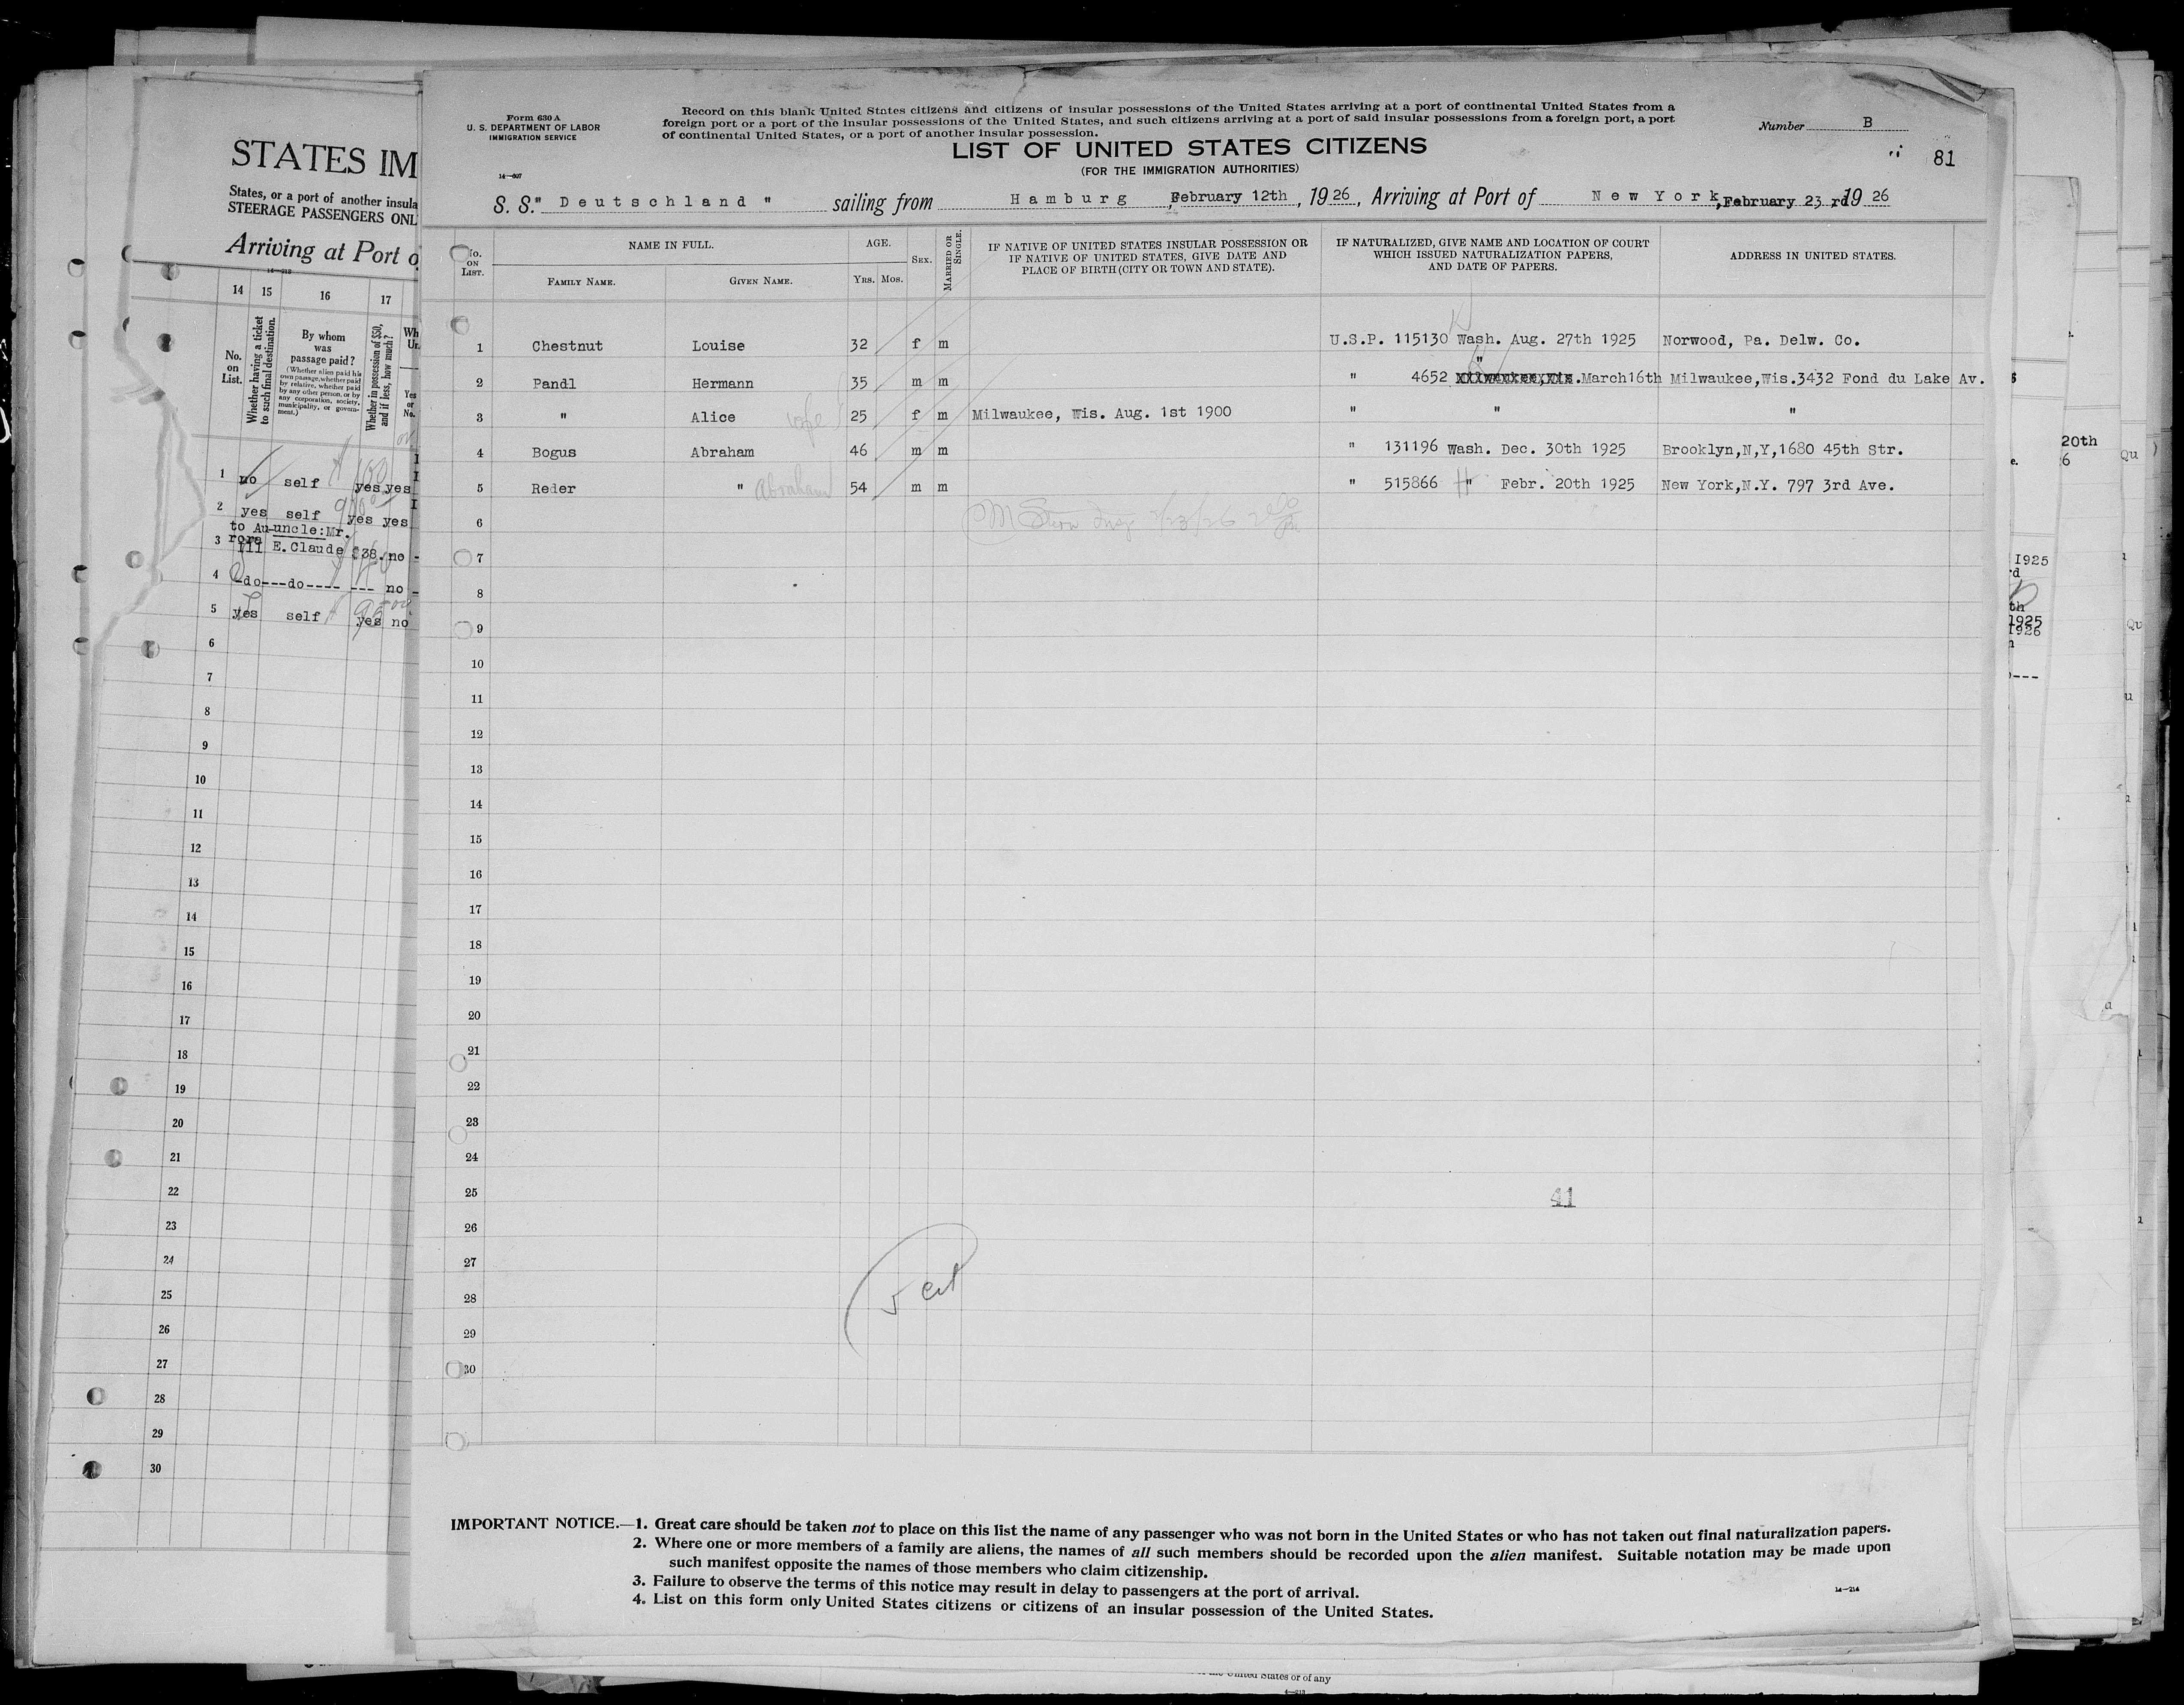 STATES IM
States, or a port of another insula
STEERAGE PASSENGERS ONL
Arriving at Port o
14—213
14 15 16 17
No. on List.
Whether having a ticket to such final destination.
By whom was passage paid?
(Whether alien paid his own passage, whether paid by relative, whether paid by any other person, or by any corporation, society, municipality, or government.)
Whether in possession of $50, and if less, how much?
Wh
Un
Yes or No.
1 no self yes yes
2 yes self yes yes
to Au- uncle: Mr.
3 rora Ill E. Claude $38. no -
4 -do---do---- --- no -
5 yes self yes no
6
7
8
9
10
11
12
13
14
15
16
17
18
19
20
21
22
23
24
25
26
27
28
29
30
Form 630 A
U. S. DEPARTMENT OF LABOR
IMMIGRATION SERVICE
14—607
Record on this blank United States citizens and citizens of insular possessions of the United States arriving at a port of continental United States from a
foreign port or a port of the insular possessions of the United States, and such citizens arriving at a port of said insular possessions from a foreign port, a port
of continental United States, or a port of another insular possession.
Number B
81
LIST OF UNITED STATES CITIZENS
(FOR THE IMMIGRATION AUTHORITIES)
S. S. " Deutschland " sailing from Hamburg, February 12th, 1926, Arriving at Port of New York, February 23 rd 1926
No. ON LIST.
NAME IN FULL.
FAMILY NAME. GIVEN NAME.
AGE.
YRS. MOS.
SEX.
MARRIED OR SINGLE.
IF NATIVE OF UNITED STATES INSULAR POSSESSION OR
IF NATIVE OF UNITED STATES, GIVE DATE AND
PLACE OF BIRTH (CITY OR TOWN AND STATE).
IF NATURALIZED, GIVE NAME AND LOCATION OF COURT
WHICH ISSUED NATURALIZATION PAPERS,
AND DATE OF PAPERS.
ADDRESS IN UNITED STATES.
1 Chestnut Louise 32 f m U.S.P. 115130 Wash. Aug. 27th 1925 Norwood, Pa. Delw. Co.
"
2 Pandl Hermann 35 m m " 4652 Milwaukee, Wis. March16th Milwaukee,Wis.3432 Fond du Lake Av.
3 " Alice 25 f m Milwaukee, Wis. Aug. 1st 1900 " " "
4 Bogus Abraham 46 m m " 131196 Wash. Dec. 30th 1925 Brooklyn,N,Y,1680 45th Str.
5 Reder " Abraham 54 m m " 515866 " Febr. 20th 1925 New York,N.Y. 797 3rd Ave.
6 2/23/26
7
8
9
10
11
12
13
14
15
16
17
18
19
20
21
22
23
24
25 41
26
27
28 5 cit
29
30
IMPORTANT NOTICE.—1. Great care should be taken not to place on this list the name of any passenger who was not born in the United States or who has not taken out final naturalization papers.
2. Where one or more members of a family are aliens, the names of all such members should be recorded upon the alien manifest. Suitable notation may be made upon
such manifest opposite the names of those members who claim citizenship.
3. Failure to observe the terms of this notice may result in delay to passengers at the port of arrival.
4. List on this form only United States citizens or citizens of an insular possession of the United States.
14—214
20th
6
Qu
1925
rd
th
1925
1926
Qu
---
u
United States or of any
4—213